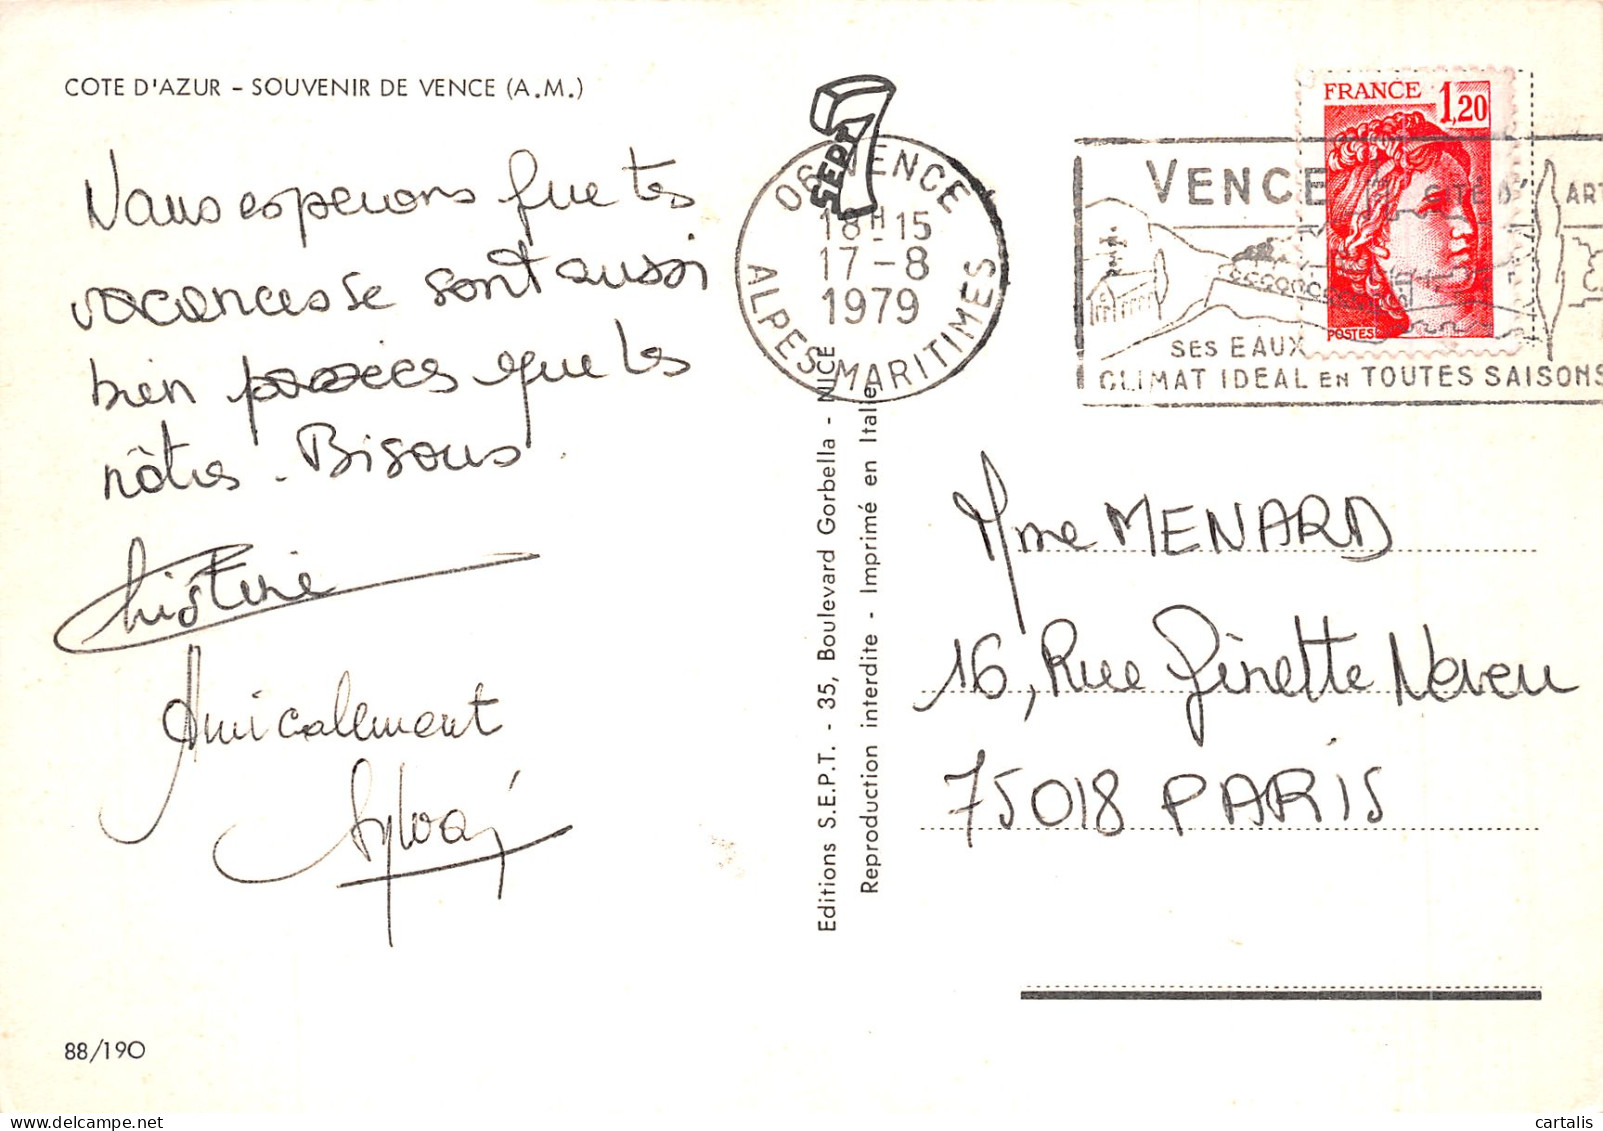 COTE D'AZUR - SOUVENIR DE VENCE (A.M.)
Nous esperons que tes
vacances se sont aussi
bien passées que les
nôtres. Bisous.
Christine
Amicalement
Sylvai
88/190
SEPT
06 VENCE
18H15
17-8
1979
ALPES MARITIMES
Editions S.E.P.T. - 35, Boulevard Gorbella - NICE
Reproduction interdite - Imprimé en Italie
FRANCE 1,20
POSTES
VENCE CITÉ D'ART
SES EAUX
CLIMAT IDEAL EN TOUTES SAISONS
Mme MENARD
16, Rue Ginette Neveu
75018 PARIS
cartalis